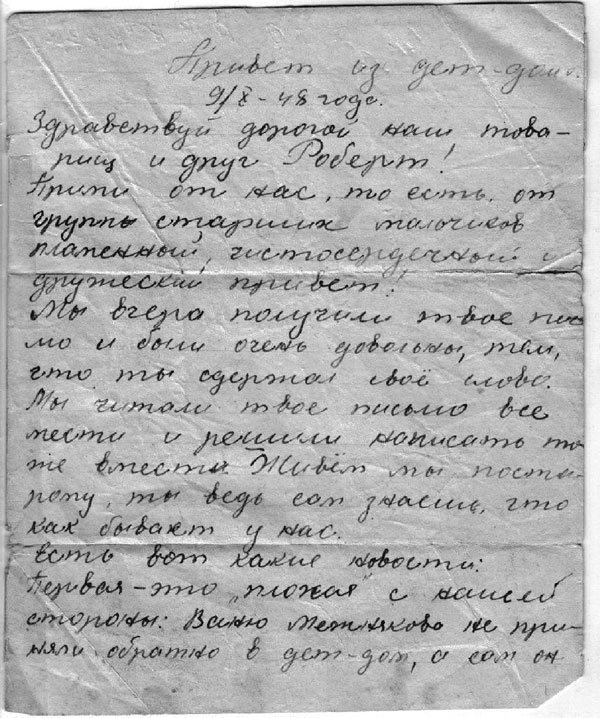 Привет из дет-дома.
9/X-48 года.
Здравствуй дорогой наш това-
рищ и друг Роберт!
Прими от нас, то есть, от
группы старших мальчиков
пламенный, чистосердечный и
дружеский привет!
Мы вчера получили твое пись
мо и были очень довольны, тем,
что ты сдержал своё слово.
Мы читали твое письмо все
мести и решили написать то
же вместе. Живём мы поста-
рому, ты ведь сам знаешь, что
как бывает у нас.
Есть вот какие новости:
Первая-это „плохая" с нашей
стороны: Ваню не при-
няли обратно в дет-дом, а сам он